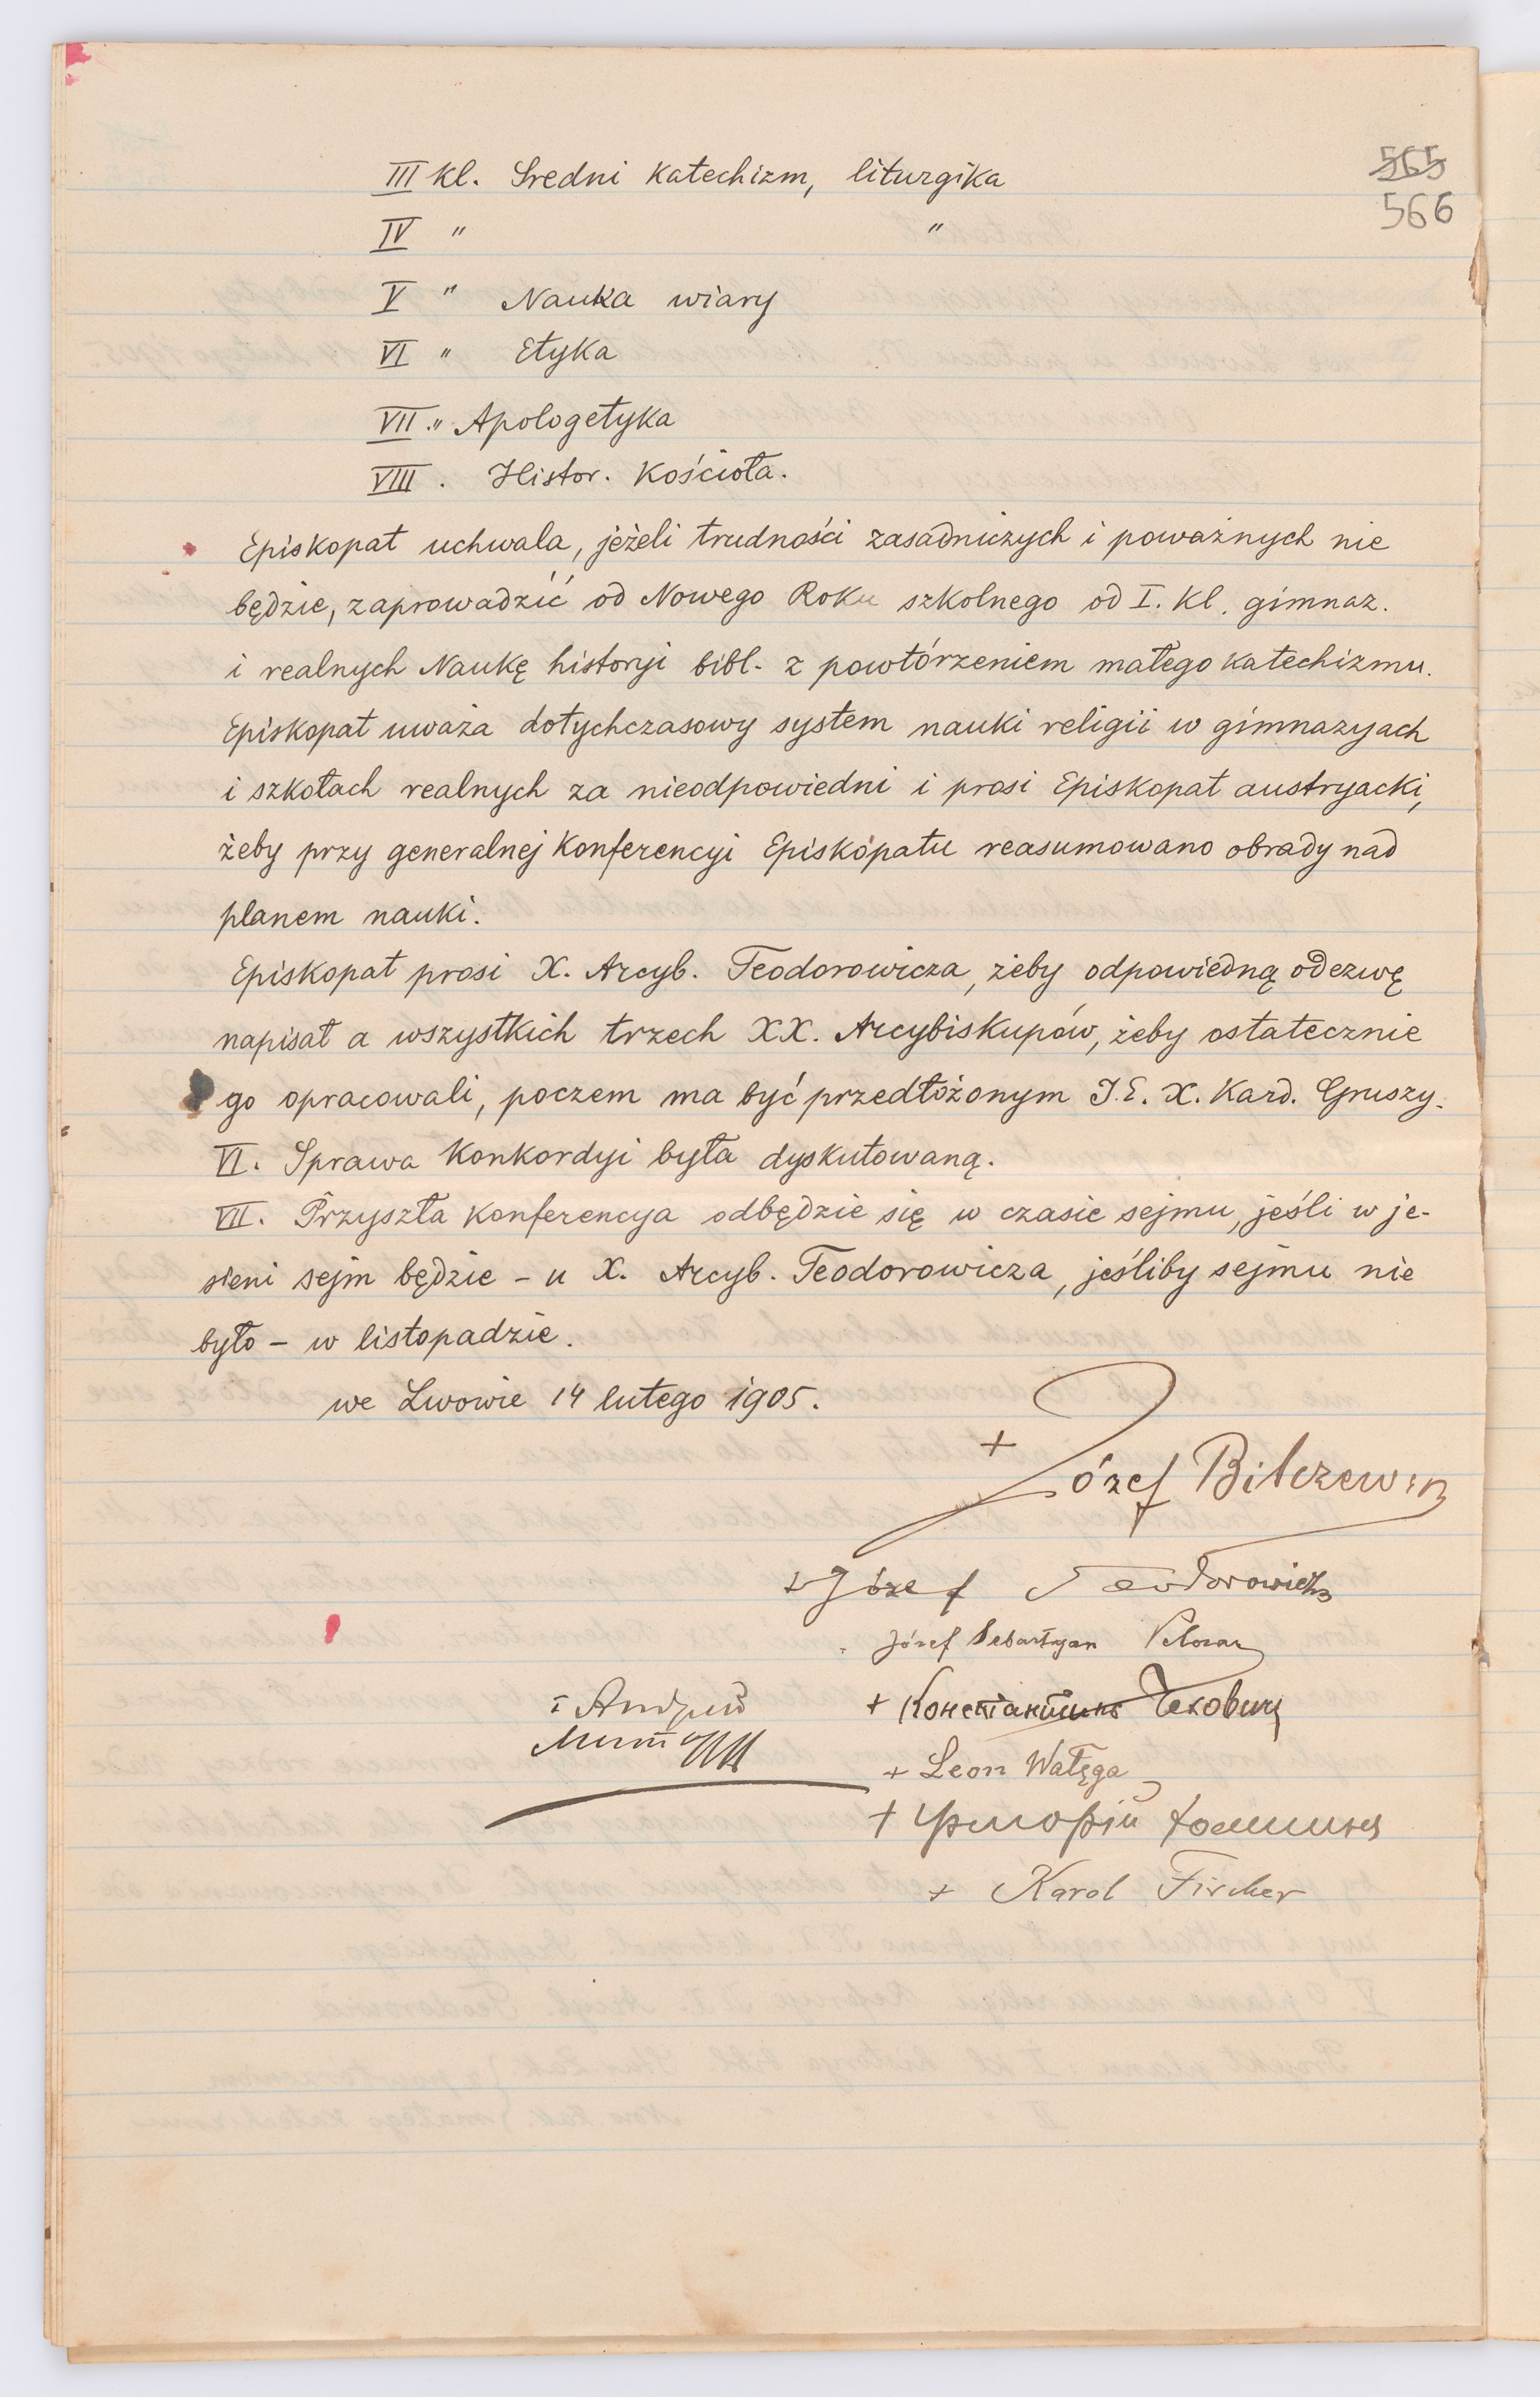 565
566
III kl. Sredni katechizm, liturgika
IV " "
V " Nauka wiary
VI " Etyka
VII " Apologetyka
VIII . Histor. Kościoła.
Episkopat uchwala, jeżeli trudności zasadniczych i poważnych nie
będzie, zaprowadzić od Nowego Roku szkolnego od I. kl. gimnaz.
i realnych Naukę historyi bibl. z powtórzeniem małego katechizmu.
Episkopat uważa dotychczasowy system nauki religii w gimnazyach
i szkołach realnych za nieodpowiedni i prosi Episkopat austryacki,
żeby przy generalnej Konferencyi Episkopatu reasumowano obrady nad
planem nauki.
Episkopat prosi X. Arcyb. Teodorowicza, żeby odpowiedną odezwę
napisał a wszystkich trzech XX. Arcybiskupów, żeby ostatecznie
go opracowali, poczem ma być przedłożonym J.E. X. Kard. Gruszy.
VI. Sprawa Konkordyi była dyskutowaną.
VII. Przyszła konferencya odbędzie się w czasie sejmu, jeśli w je-
sieni sejm będzie – u X. Arcyb. Teodorowicza, jeśliby sejmu nie
było – w listopadzie.
we Lwowie 14 lutego 1905.
+ Józef Bilczewski
+ Józef Teodorowicz
Józef Sebastyan Pelczar
+ Андрей
+ Константинъ Чехович
+ Leon Wałęga
+ Григорій Хомишин
+ Karol Fischer